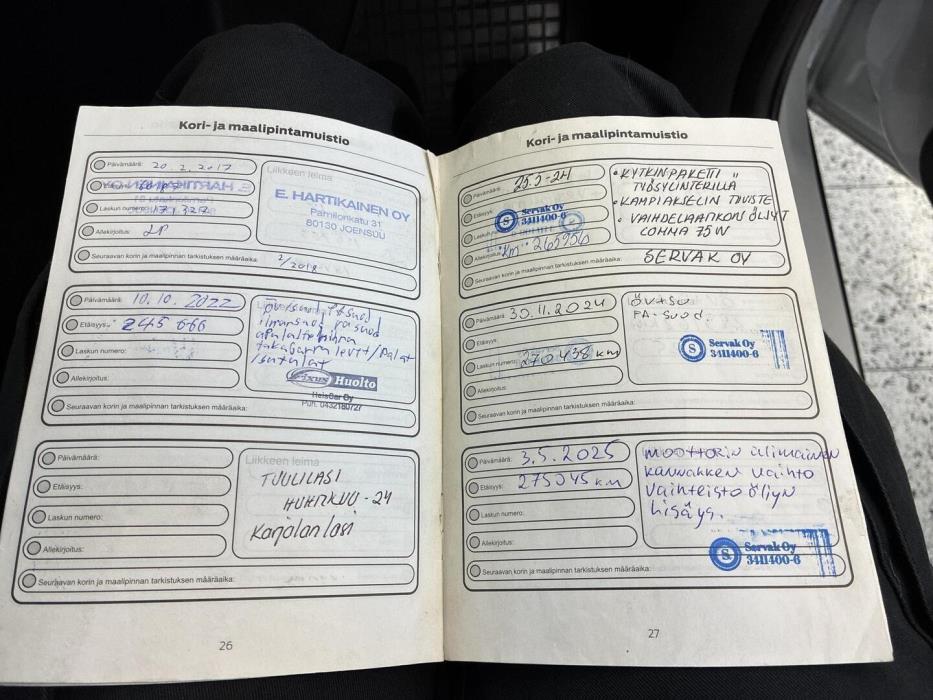 Kori- ja maalipintamuistio
Päivämäärä: 20.2.2017
Laskun numero: 171327
Allekirjoitus:
Seuraavan korin ja maalipinnan tarkistuksen määräaika: 2/2018
Liikkeen leima
E. HARTIKAINEN OY
Pamilonkatu 31
80130 JOENSUU
Päivämäärä: 10.10.2022
Etäisyys: 245 666
Laskun numero:
Allekirjoitus:
Seuraavan korin ja maalipinnan tarkistuksen määräaika:
takajarru levyt/palat
/satulat
Fixus Huolto
HeisCar Oy
Puh. 0432180727
Päivämäärä:
Etäisyys:
Laskun numero:
Allekirjoitus:
Seuraavan korin ja maalipinnan tarkistuksen määräaika:
Liikkeen leima
TUULILASI
HUHTIKUU -24
Karjalan lasi
26
Kori- ja maalipintamuistio
Päivämäärä: 25.5-24
Etäisyys:
Servak Oy
3411400-6
Allekirjoitus: km
Seuraavan korin ja maalipinnan tarkistuksen määräaika:
• KYTKINPAKETTI
TYÖSYLINTERILLÄ
• KAMPIAKSELIN TIIVISTE
• VAIHDELAATIKON ÖLJYT
COMMA 75W
SERVAK OY
Päivämäärä: 30.11.2024
Etäisyys:
Laskun numero: 270438 km
Allekirjoitus:
Seuraavan korin ja maalipinnan tarkistuksen määräaika:
ÖV+SU
PA-SUOD.
Servak Oy
3411400-6
Päivämäärä: 3.5.2025
Etäisyys: 275045 km
Laskun numero:
Allekirjoitus:
Seuraavan korin ja maalipinnan tarkistuksen määräaika:
moottorin ylimäinen
kannakkeen vaihto
Vaihteisto öljyn
lisäys.
Servak Oy
3411400-6
27